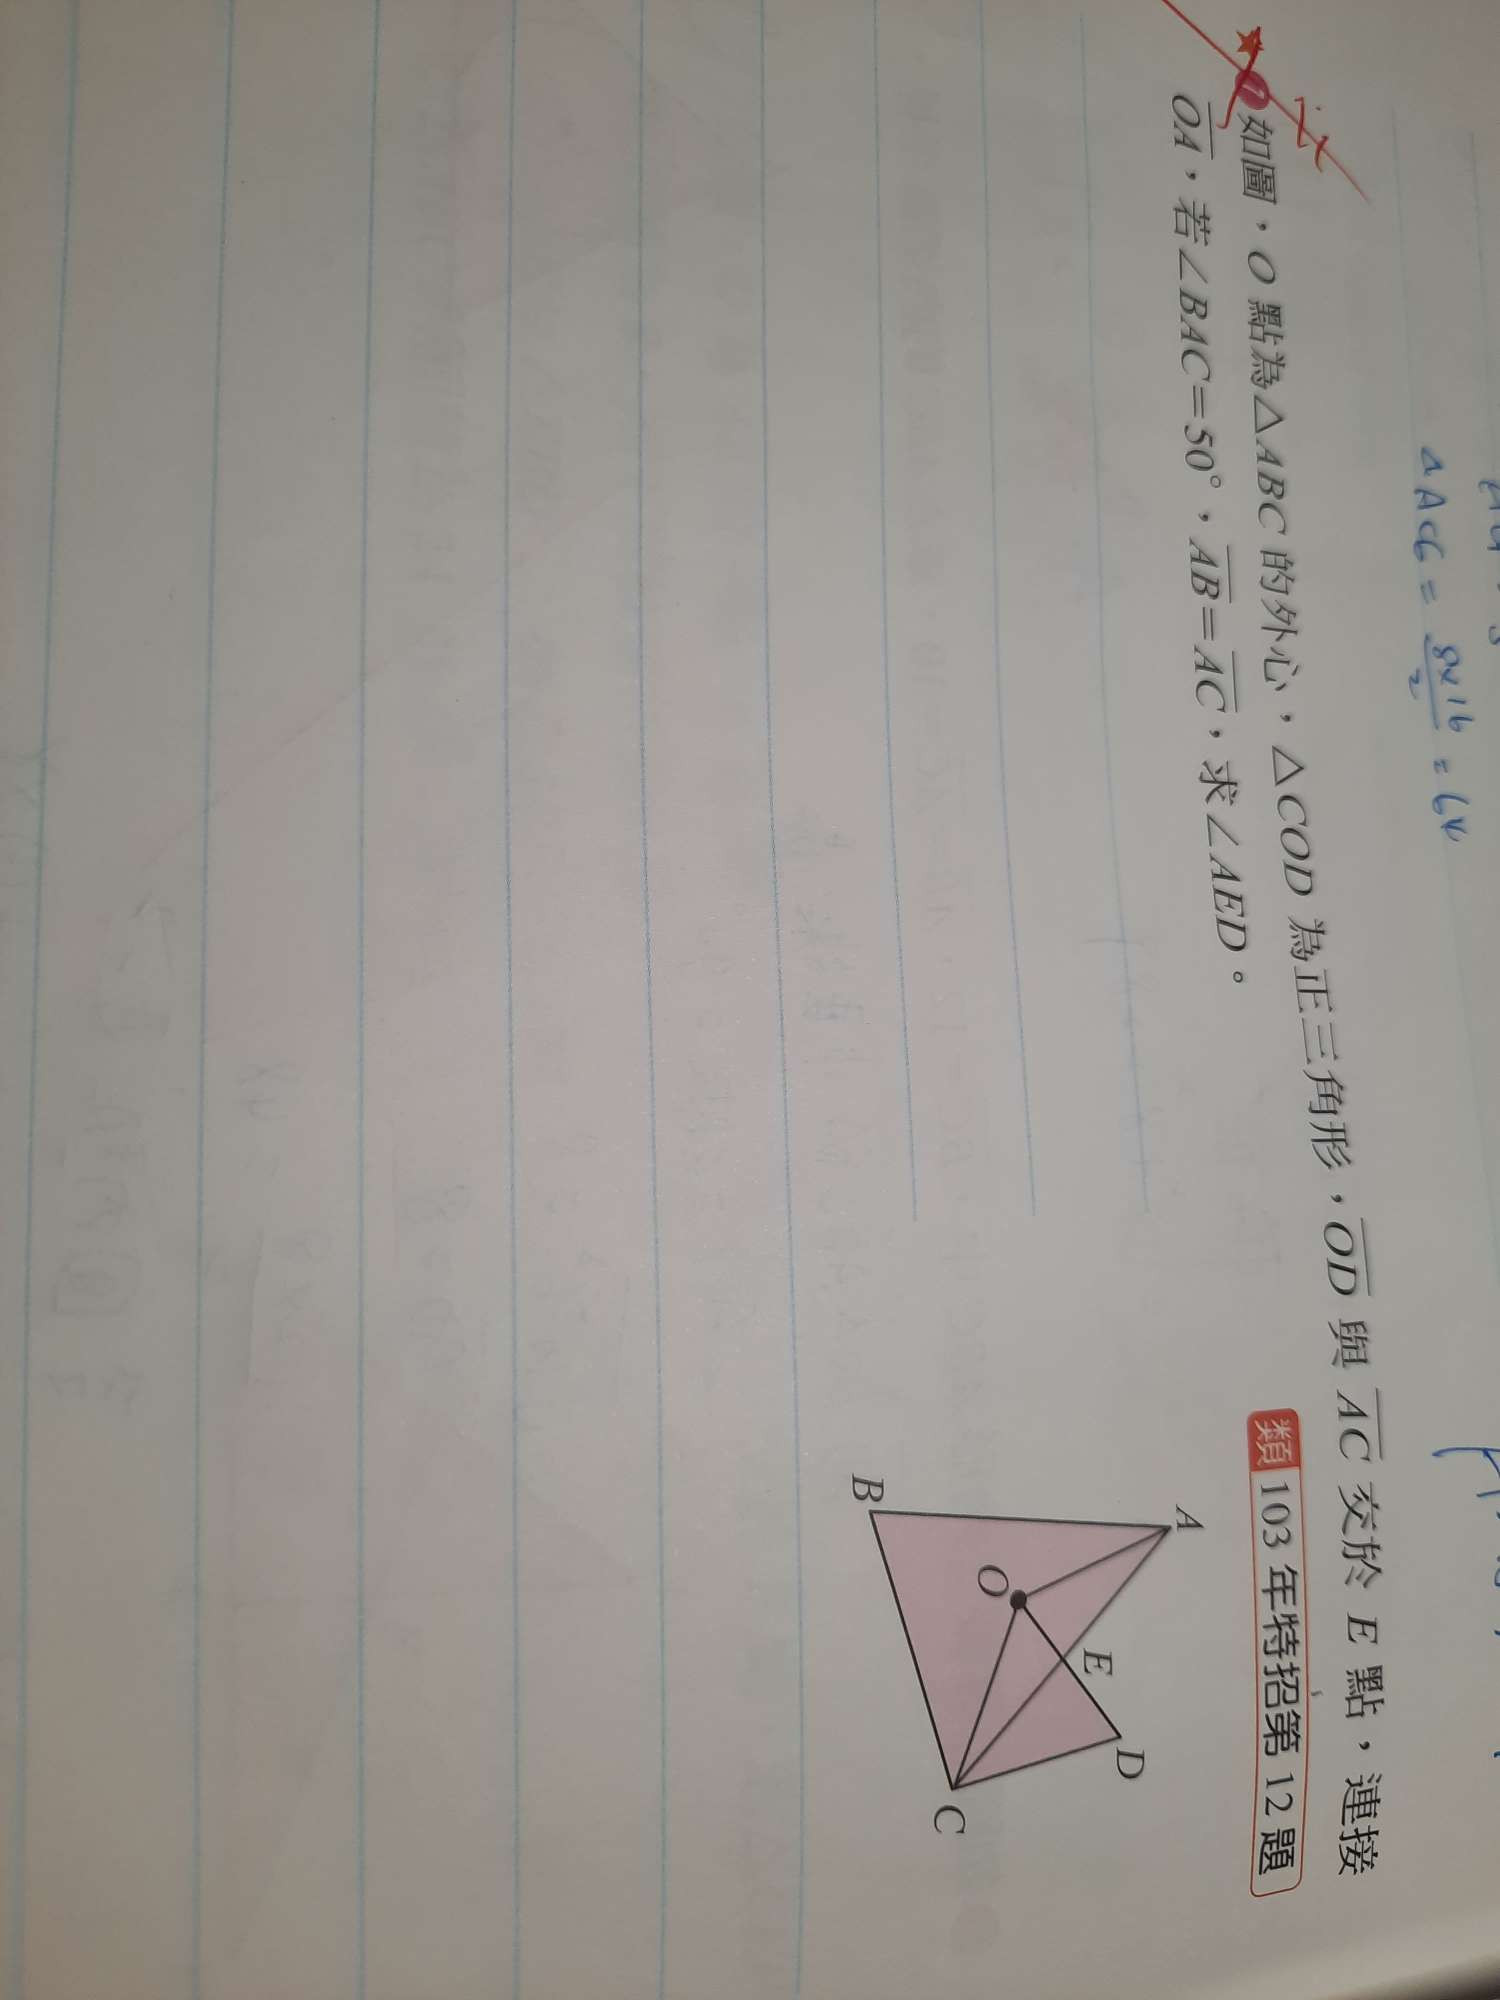 △ACG = 8×16/2 = 64
7 如圖，O 點為△ABC 的外心，△COD 為正三角形，OD 與 AC 交於 E 點，連接
OA，若∠BAC＝50°，AB＝AC，求∠AED。
類 103 年特招第 12 題
A
B
O
E
D
C